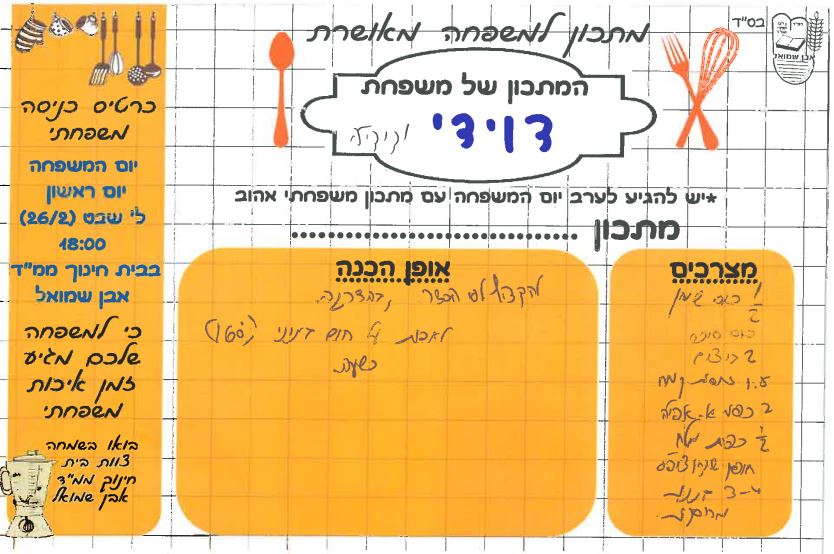 בס"ד
אבן שמואל
מתכון למשפחה מאושרת
המתכון של משפחת
דוידי
*יש להגיע לערב יום המשפחה עם מתכון משפחתי אהוב
מתכון ..............................
מצרכים
½ כוס שמן
כוס סוכר
2 ביצים
1.5 כוסות קמח
2 כפיות א. אפיה
½ כפית מלח
חופן שוקוצ'יפס
3-4 בננות
מרוסקות
אופן הכנה
להקציף לפי הסדר
לאפות על חום בינוני (160°)
כשעה.
כרטיס כניסה
משפחתי
יום המשפחה
יום ראשון
ל' שבט (26/2)
18:00
בבית חינוך ממ"ד
אבן שמואל
כי למשפחה
שלכם מגיע
זמן איכות
משפחתי
בואו בשמחה
צוות בית
חינוך ממ"ד
אבן שמואל